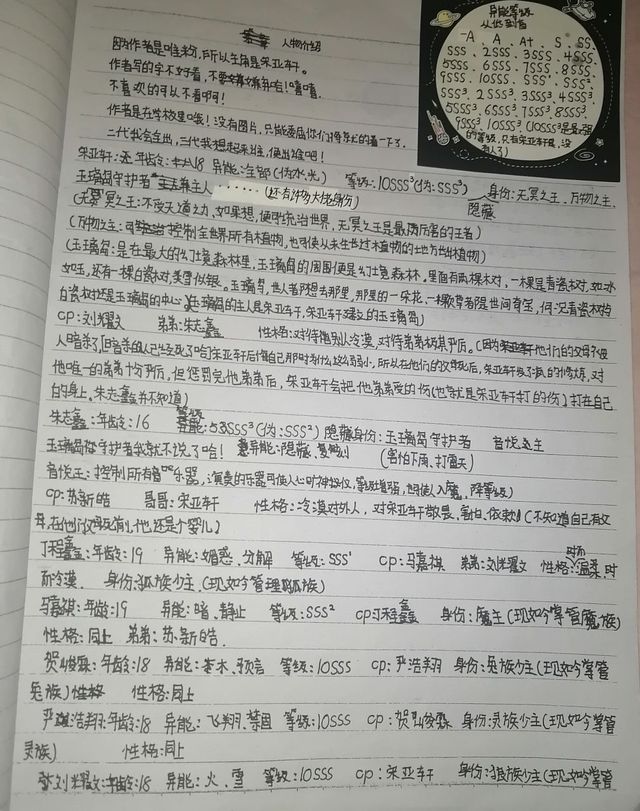 人物介绍
因为作者是唯粉,所以主角是宋亚轩。
作者写的字不好看,不要嫌弃哈!嘻嘻.
不喜欢的可以不看啊!
作者是在学校里哦!没有图片,只能委屈你们将就的看一下了.
二代我会全出,三代我想起来谁,便出谁吧!
异能等级
从低到高
-A A A+ S SS
SSS 2SSS 3SSS 4SSS
5SSS 6SSS 7SSS 8SSS
9SSS 10SSS SSS¹ SSS²
SSS³ 2SSS³ 3SSS³ 4SSS³
5SSS³ 6SSS³ 7SSS³ 8SSS³
9SSS³ 10SSS³ (10SSS³是最强
的等级,只有宋亚轩是,没
有人了)
宋亚轩:年龄:18 异能:全部(伪:水,光) 等级:10SSS³(伪:SSS³) 隐藏身份:无冥之王、万物之主、
玉璃岛守护者 主人······(还有许多大佬身份)
(无冥之王:不受天道之力,如果想,便可统治世界,无冥之王是最厉害的王者)
(万物之主:可控制全世界所有木植物,也可使从未生出过木植物的地方出植物)
(玉璃岛:是在最大的幻境森林里,玉璃岛的周围便是幻境森林.里面有两棵木对,一棵是青瓷树,如冰
如玉,还有一棵白瓷树,美雪似银。玉璃岛,世人者阿想去那里,那里的一朵花,一棵草都是世间奇宝,何况青瓷树和
白瓷树还是玉璃岛的中心,玉璃岛的主人是宋亚轩,宋亚轩建立的玉璃岛)
cp:刘耀文 弟弟:朱志鑫 性格:对待别人冷漠,对待弟弟极其严厉。(因为他们的父母被
人暗杀了,(暗杀的人已经死了哈)宋亚轩后悔自己那时为什么这么弱小,所以在他们的父母死后,宋亚轩发了疯的修炼,对
他唯一的弟弟十分严厉,但惩罚完他弟弟后,宋亚轩会把他弟弟受的伤(也就是宋亚轩打的伤)打在自己
的身上,朱志鑫并不知道)
朱志鑫:年龄:16 等级:5SSS³(伪:SSS²) 隐藏身份:玉璃岛守护者 音悦之主
玉璃岛守护者我就不说了哈! 异能:隐藏、复制 (害怕下雨、打雷天)
音悦王:控制所有音乐器,演奏的乐器可使人心旷神怡,等级增强,也可使人入魔,降等级)
cp:苏新皓 哥哥:宋亚轩 性格:冷漠对外人,对宋亚轩敬畏、害怕、依赖!(不知道自己有父
母,在他们父母死前,他还是个婴儿)
丁程鑫:年龄:19 异能:媚惑、分解 等级:SSS¹ cp:马嘉祺 弟弟:刘耀文 性格:时而温柔,时
而冷漠. 身份:狐族少主.(现如今管理狐族)
马嘉祺:年龄:19 异能:暗、静止 等级:SSS² cp:丁程鑫 身份:魔主(现如今掌管魔族)
性格:同上 弟弟:苏新皓.
贺峻霖:年龄:18 异能:木、预言 等级:10SSS cp:严浩翔 身份:兔族少主(现如今掌管
兔族) 性格:同上
严浩翔:年龄:18 异能:飞翔、禁固 等级:10SSS cp:贺峻霖 身份:灵族少主(现如今掌管
灵族) 性格:同上
刘耀文:年龄:18 异能:火、雪 等级:10SSS cp:宋亚轩 身份:狼族少主(现如今掌管